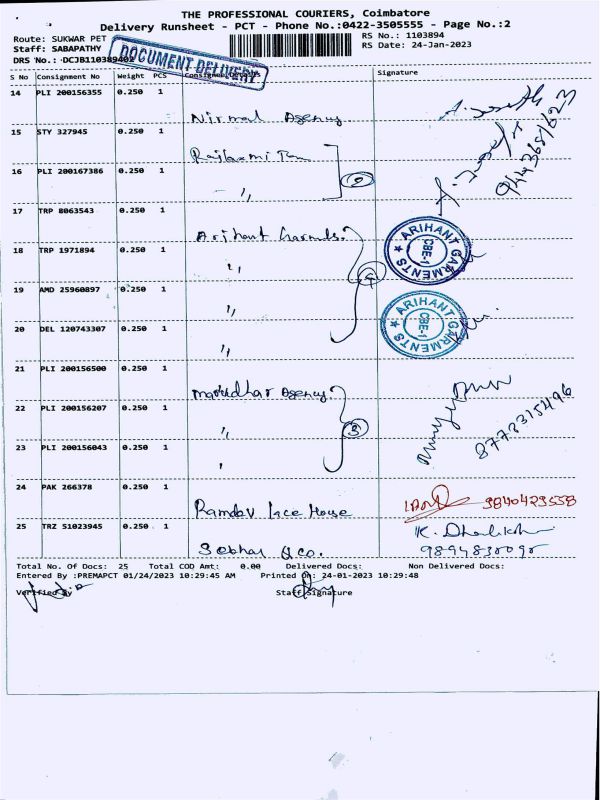 THE PROFESSIONAL COURIERS, Coimbatore
Delivery Runsheet - PCT - Phone No.:0422-3505555 - Page No.:2
Route: SUKWAR PET
RS No.: 1103894
Staff: SABAPATHY
RS Date: 24-Jan-2023
DRS No.: DCJB110389402
DOCUMENT DELIVERY
S No Consignment No Weight PCS Consignee Details Signature
14 PLI 200156355 0.250 1
Nirmal Agency
15 STY 327945 0.250 1
16 PLI 200167386 0.250 1
"
17 TRP 8063543 0.250 1
Arihant
ARIHANT GARMENTS CBE-1
18 TRP 1971894 0.250 1
"
19 AMD 25960897 0.250 1
"
ARIHANT GARMENTS CBE-1
20 DEL 120743307 0.250 1
"
21 PLI 200156500 0.250 1
Marudhar Agency
22 PLI 200156207 0.250 1
" 3
8778315496
23 PLI 200156043 0.250 1
"
24 PAK 266378 0.250 1
Ramdev Lace House
9840429558
25 TRZ 51023945 0.250 1
& Co.
Total No. Of Docs: 25 Total COD Amt: 0.00 Delivered Docs: Non Delivered Docs:
Entered By :PREMAPCT 01/24/2023 10:29:45 AM Printed On: 24-01-2023 10:29:48
Verified By Staff Signature